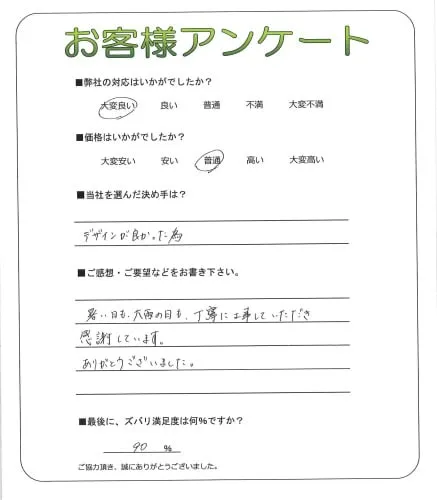 お客様アンケート
■弊社の対応はいかがでしたか？
大変良い 良い 普通 不満 大変不満
■価格はいかがでしたか？
大変安い 安い 普通 高い 大変高い
■当社を選んだ決め手は？
デザインが良かった為
■ご感想・ご要望などをお書き下さい。
暑い日も、大雨の日も、丁寧に工事していただき
感謝しています。
ありがとうございました。
■最後に、ズバリ満足度は何%ですか？
90 %
ご協力頂き、誠にありがとうございました。